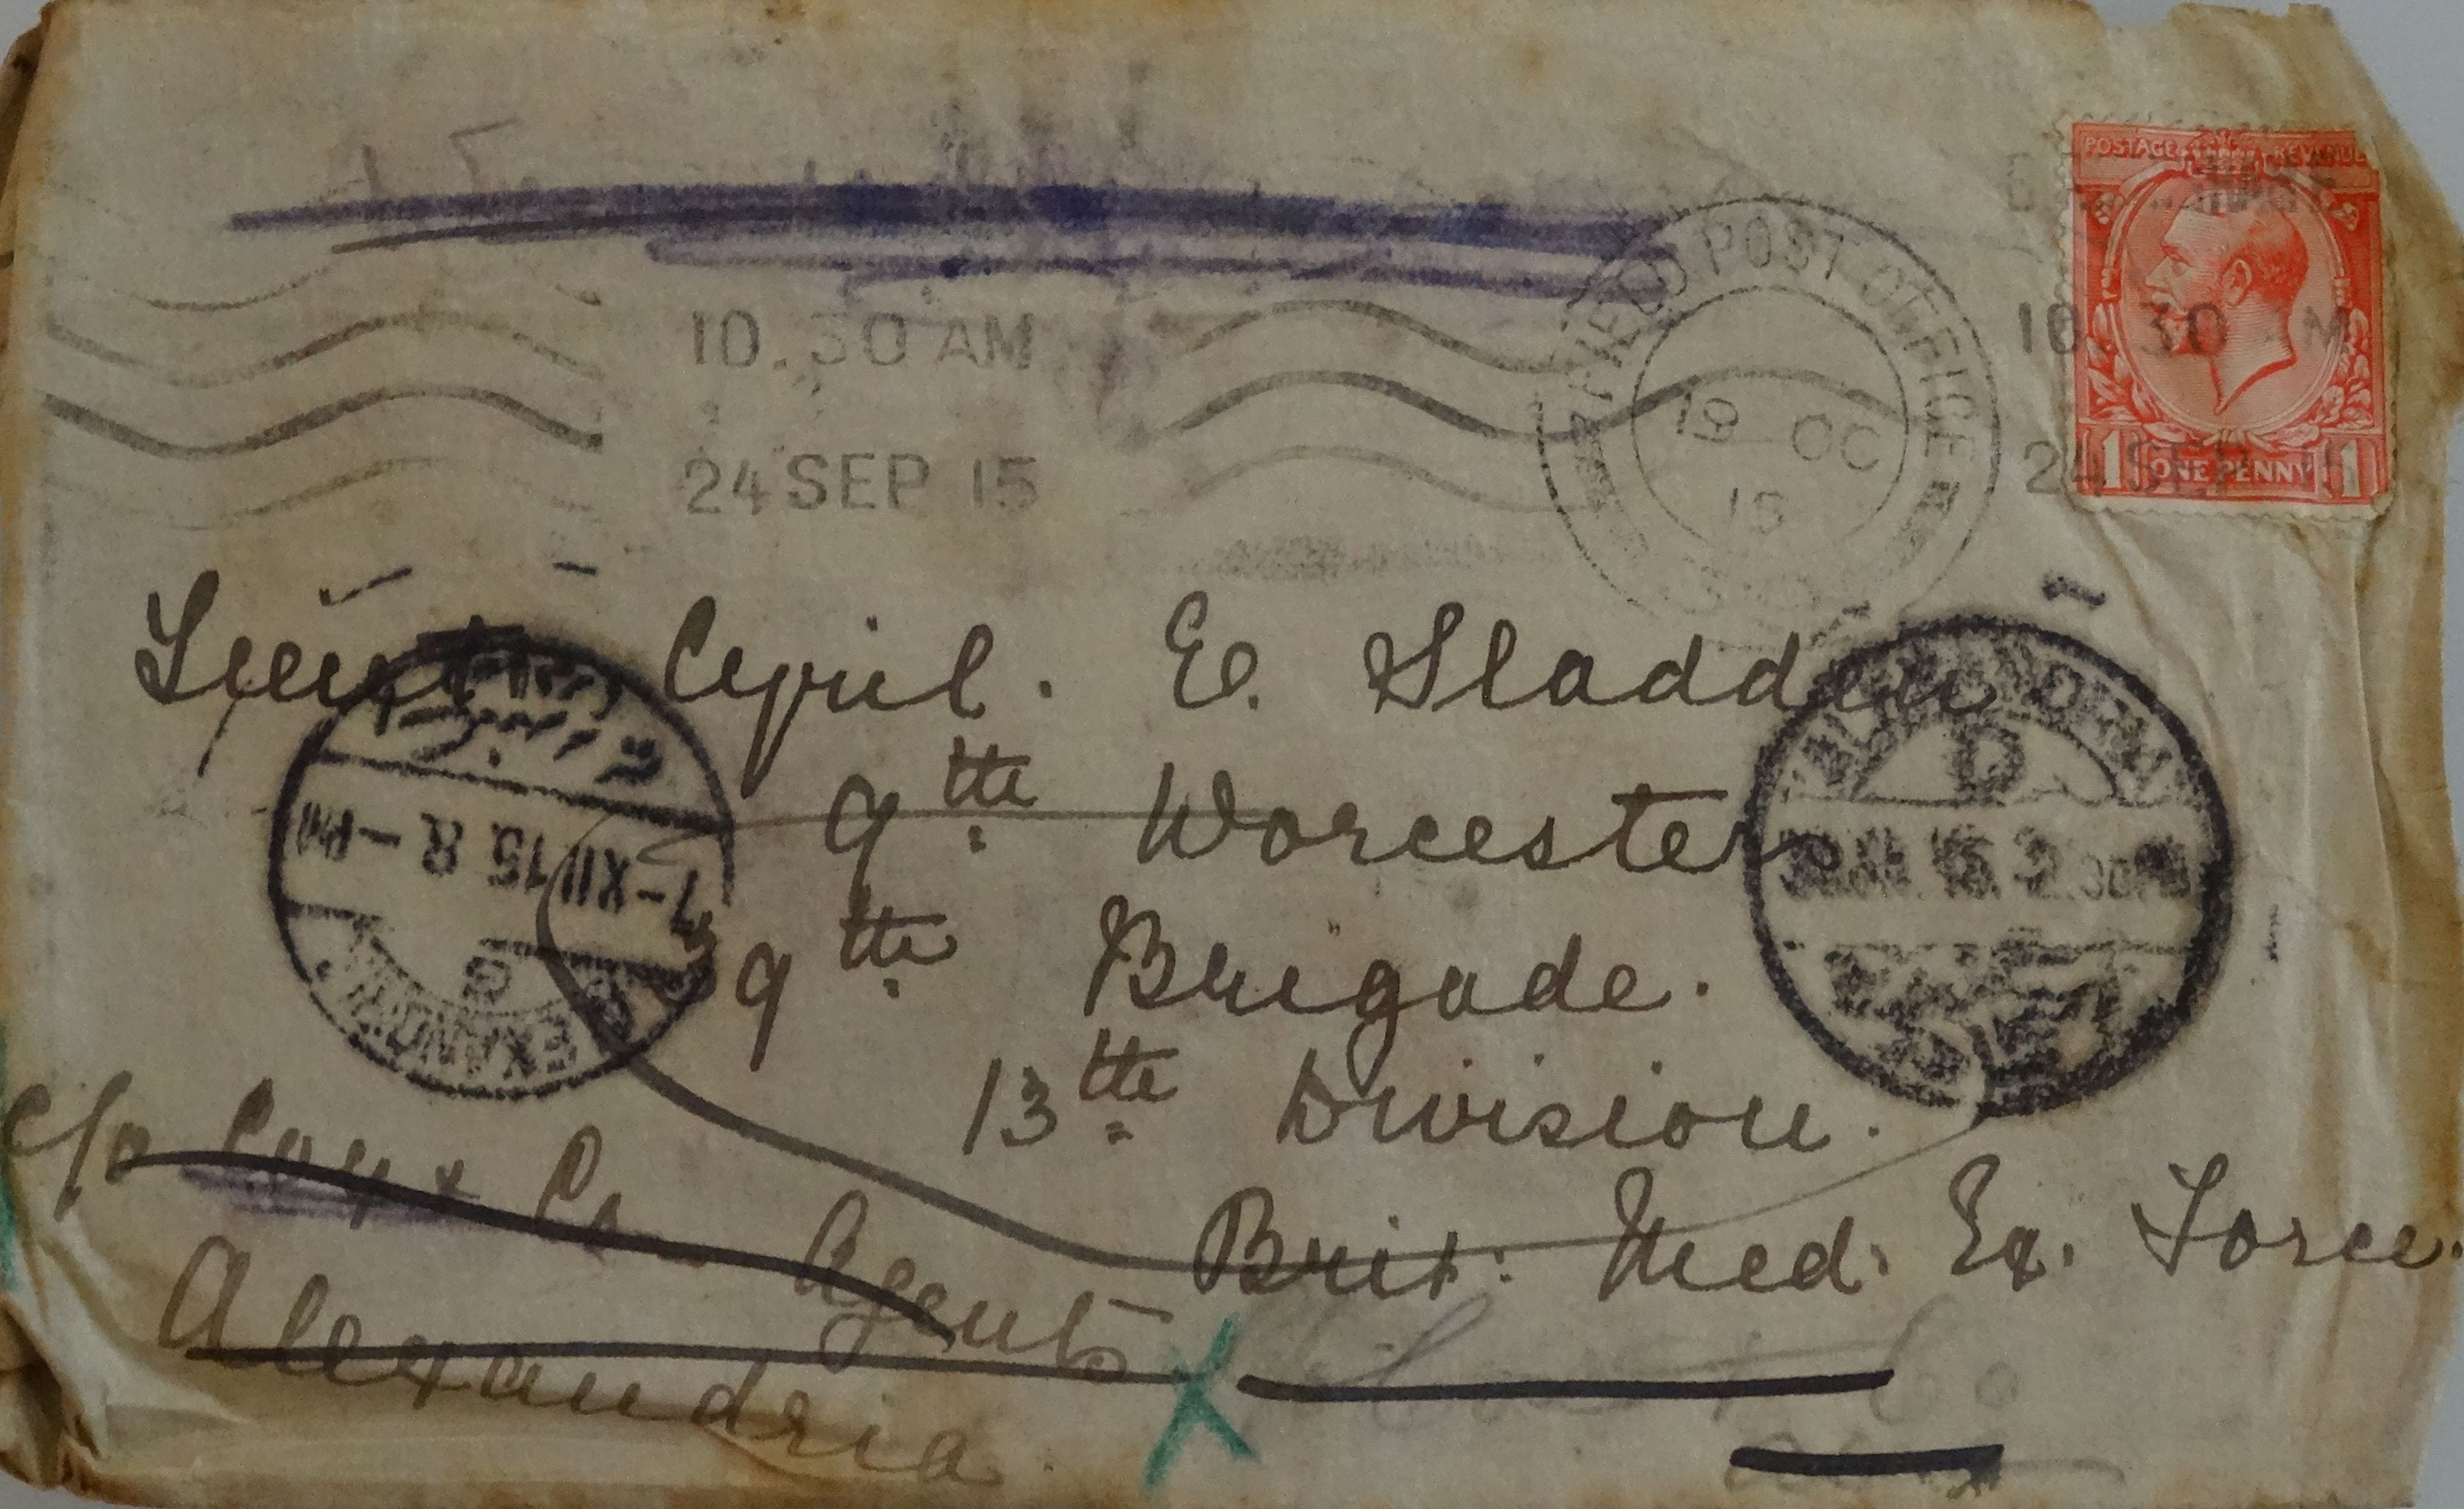 POSTAGE REVENUE
10.30 AM
24 SEP 15
FIELD POST OFFICE
19 OC
15
10.30 AM
24 SEP 15
1 ONE PENNY 1
Lieut. Cyril. E. Sladden
9th Worcester
39th Brigade.
13th Division.
Brit: Med. Ex. Force.
c/o Cox & Co Agents
Alexandria.
7-XII 15. 8 - PM
ALEXANDRIA
D